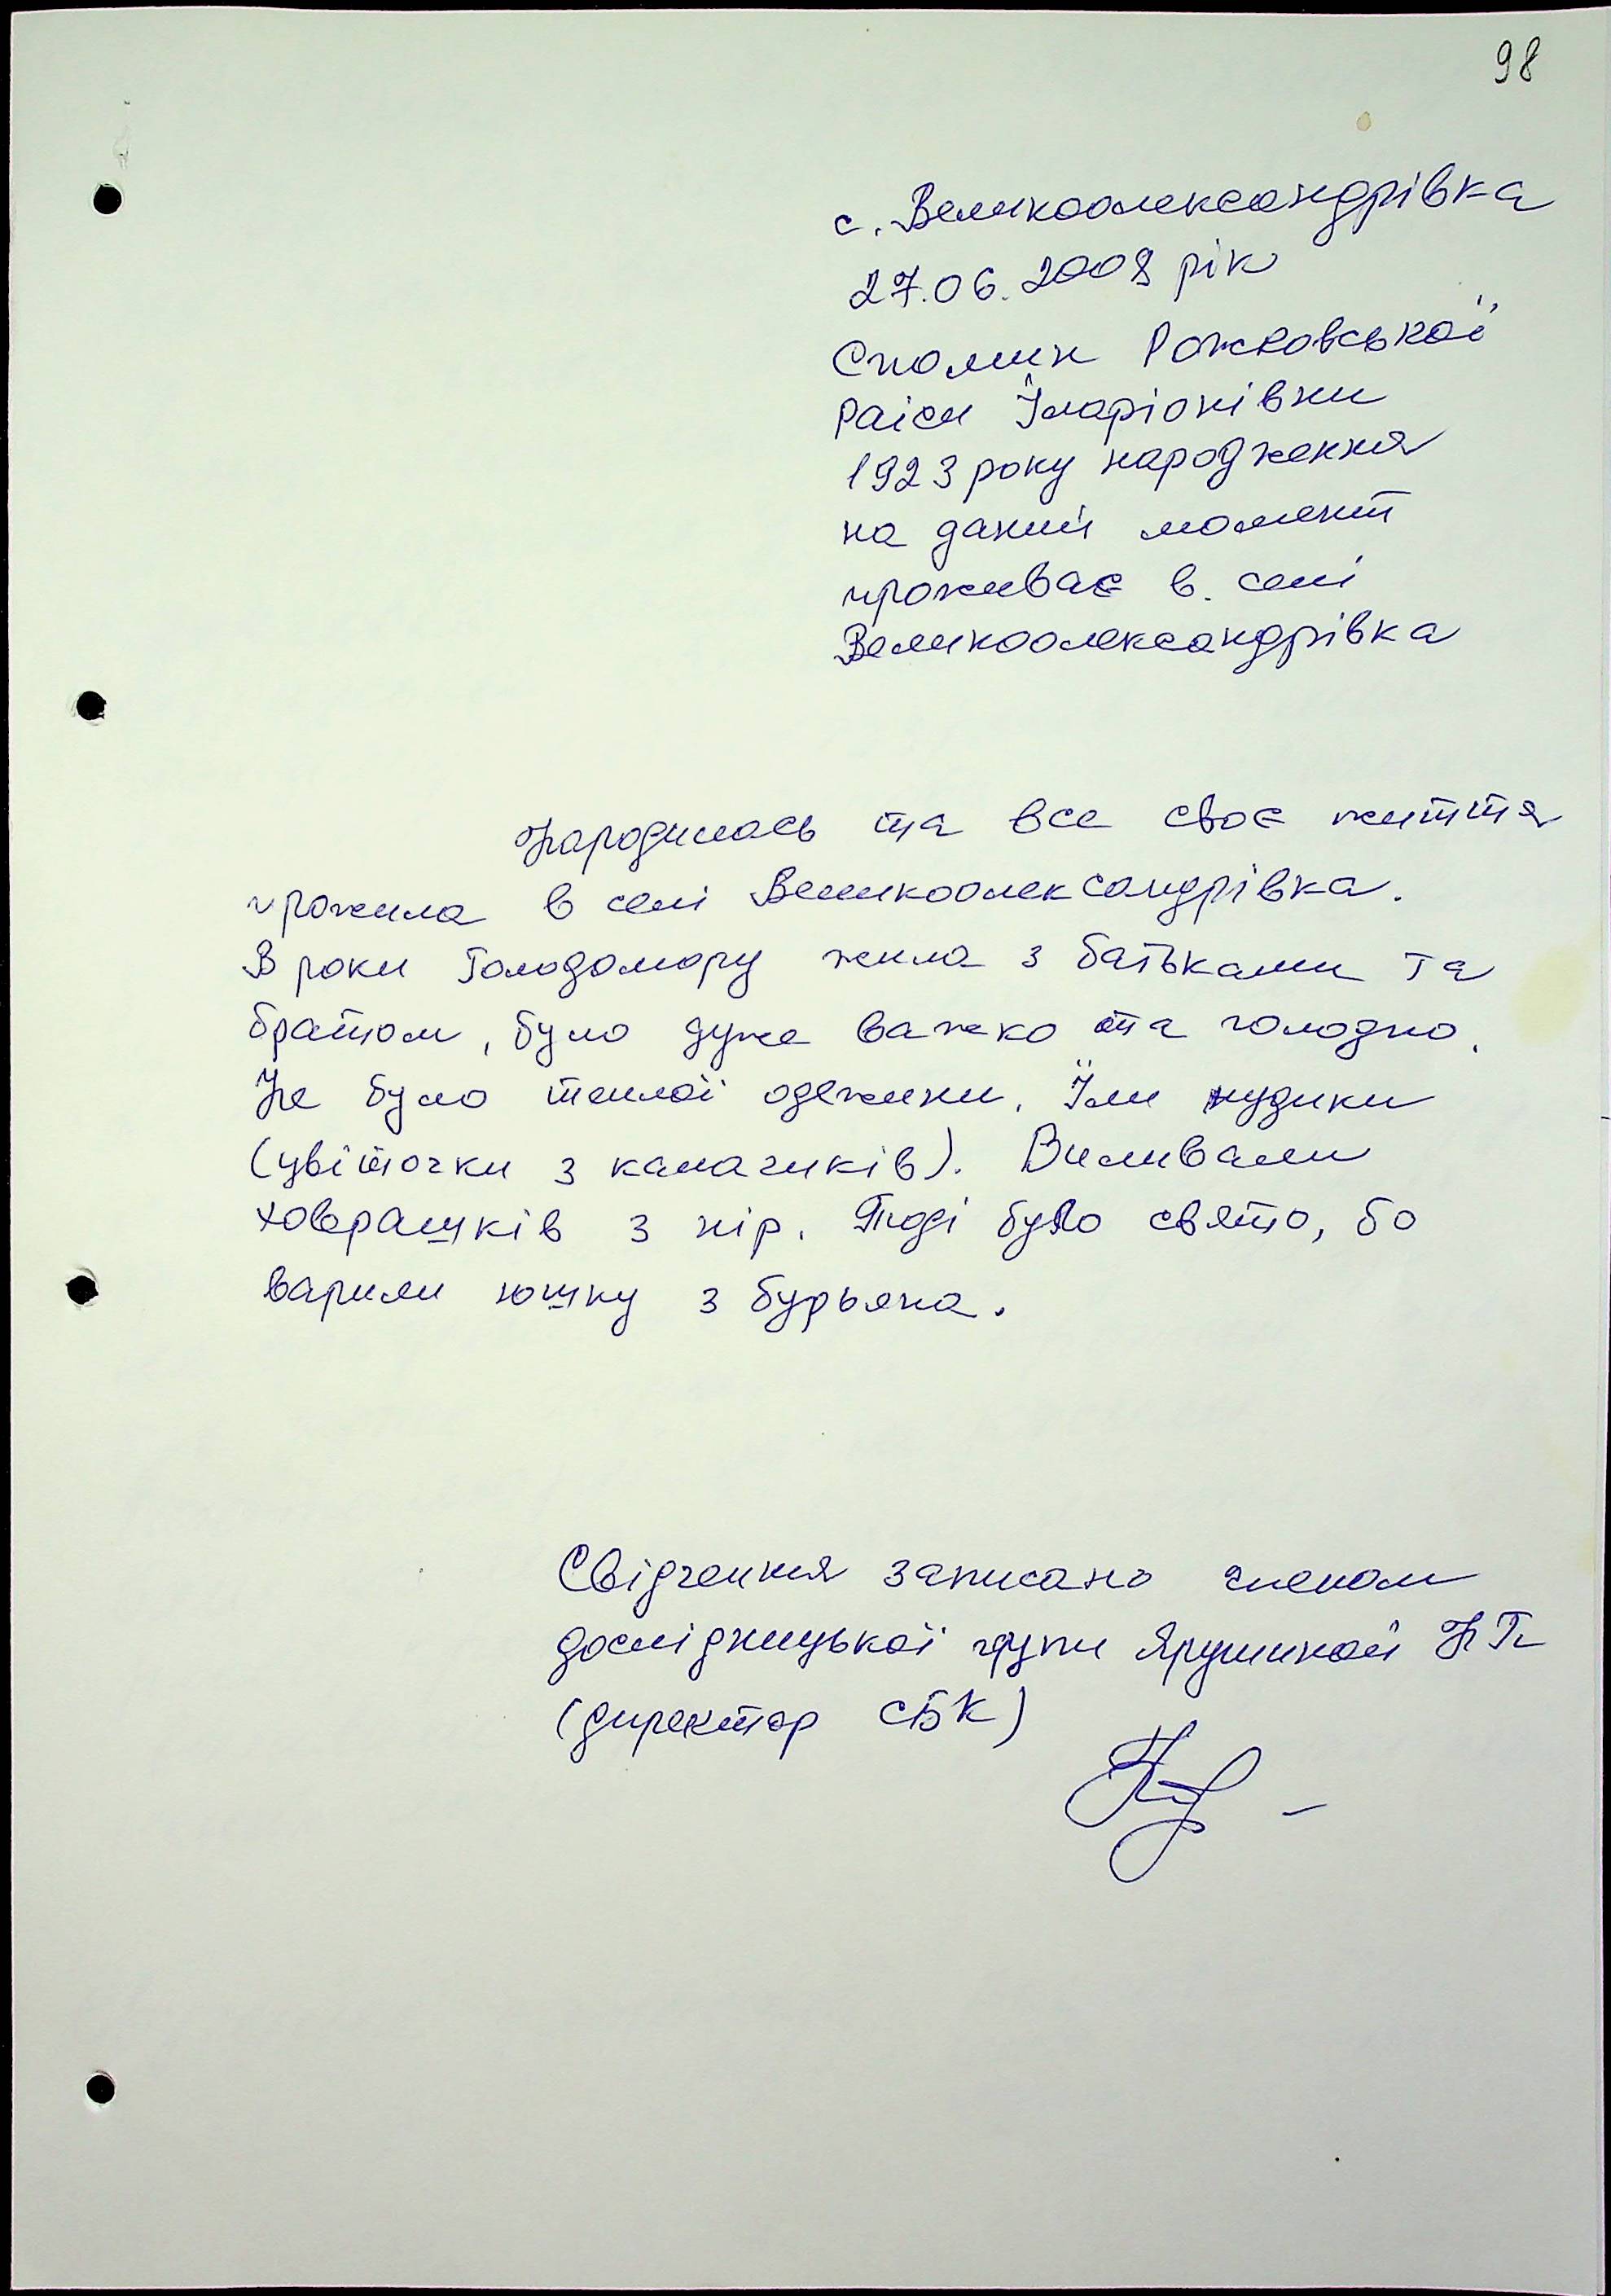 98
с. Великоолександрівка
27.06.2008 рік
Спомин Рожковської
Раіси Їларіонівни
1923 року народження
на даний момент
проживає в. селі
Великоолександрівка
Народилась та все своє життя
прожила в селі Великоолександрівка.
В роки Голодомору жила з батьками та
братом, було дуже важко та голодно.
Не було теплої одежини. Їли нудики
(цвіточки з калачиків). Виливали
ховрашків з нір. Тоді було свято, бо
варили юшку з бурьяна.
Свідчення записано членом
дослідницької групи Ярушиной Н Г
(директор СБК)